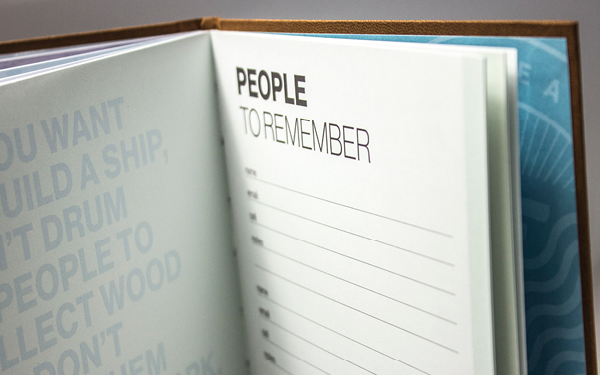 OU WANT
UILD A SHIP,
N'T DRUM
PEOPLE TO
LLECT WOOD
DON'T
HEM
RK,
PEOPLE
TO REMEMBER
E A